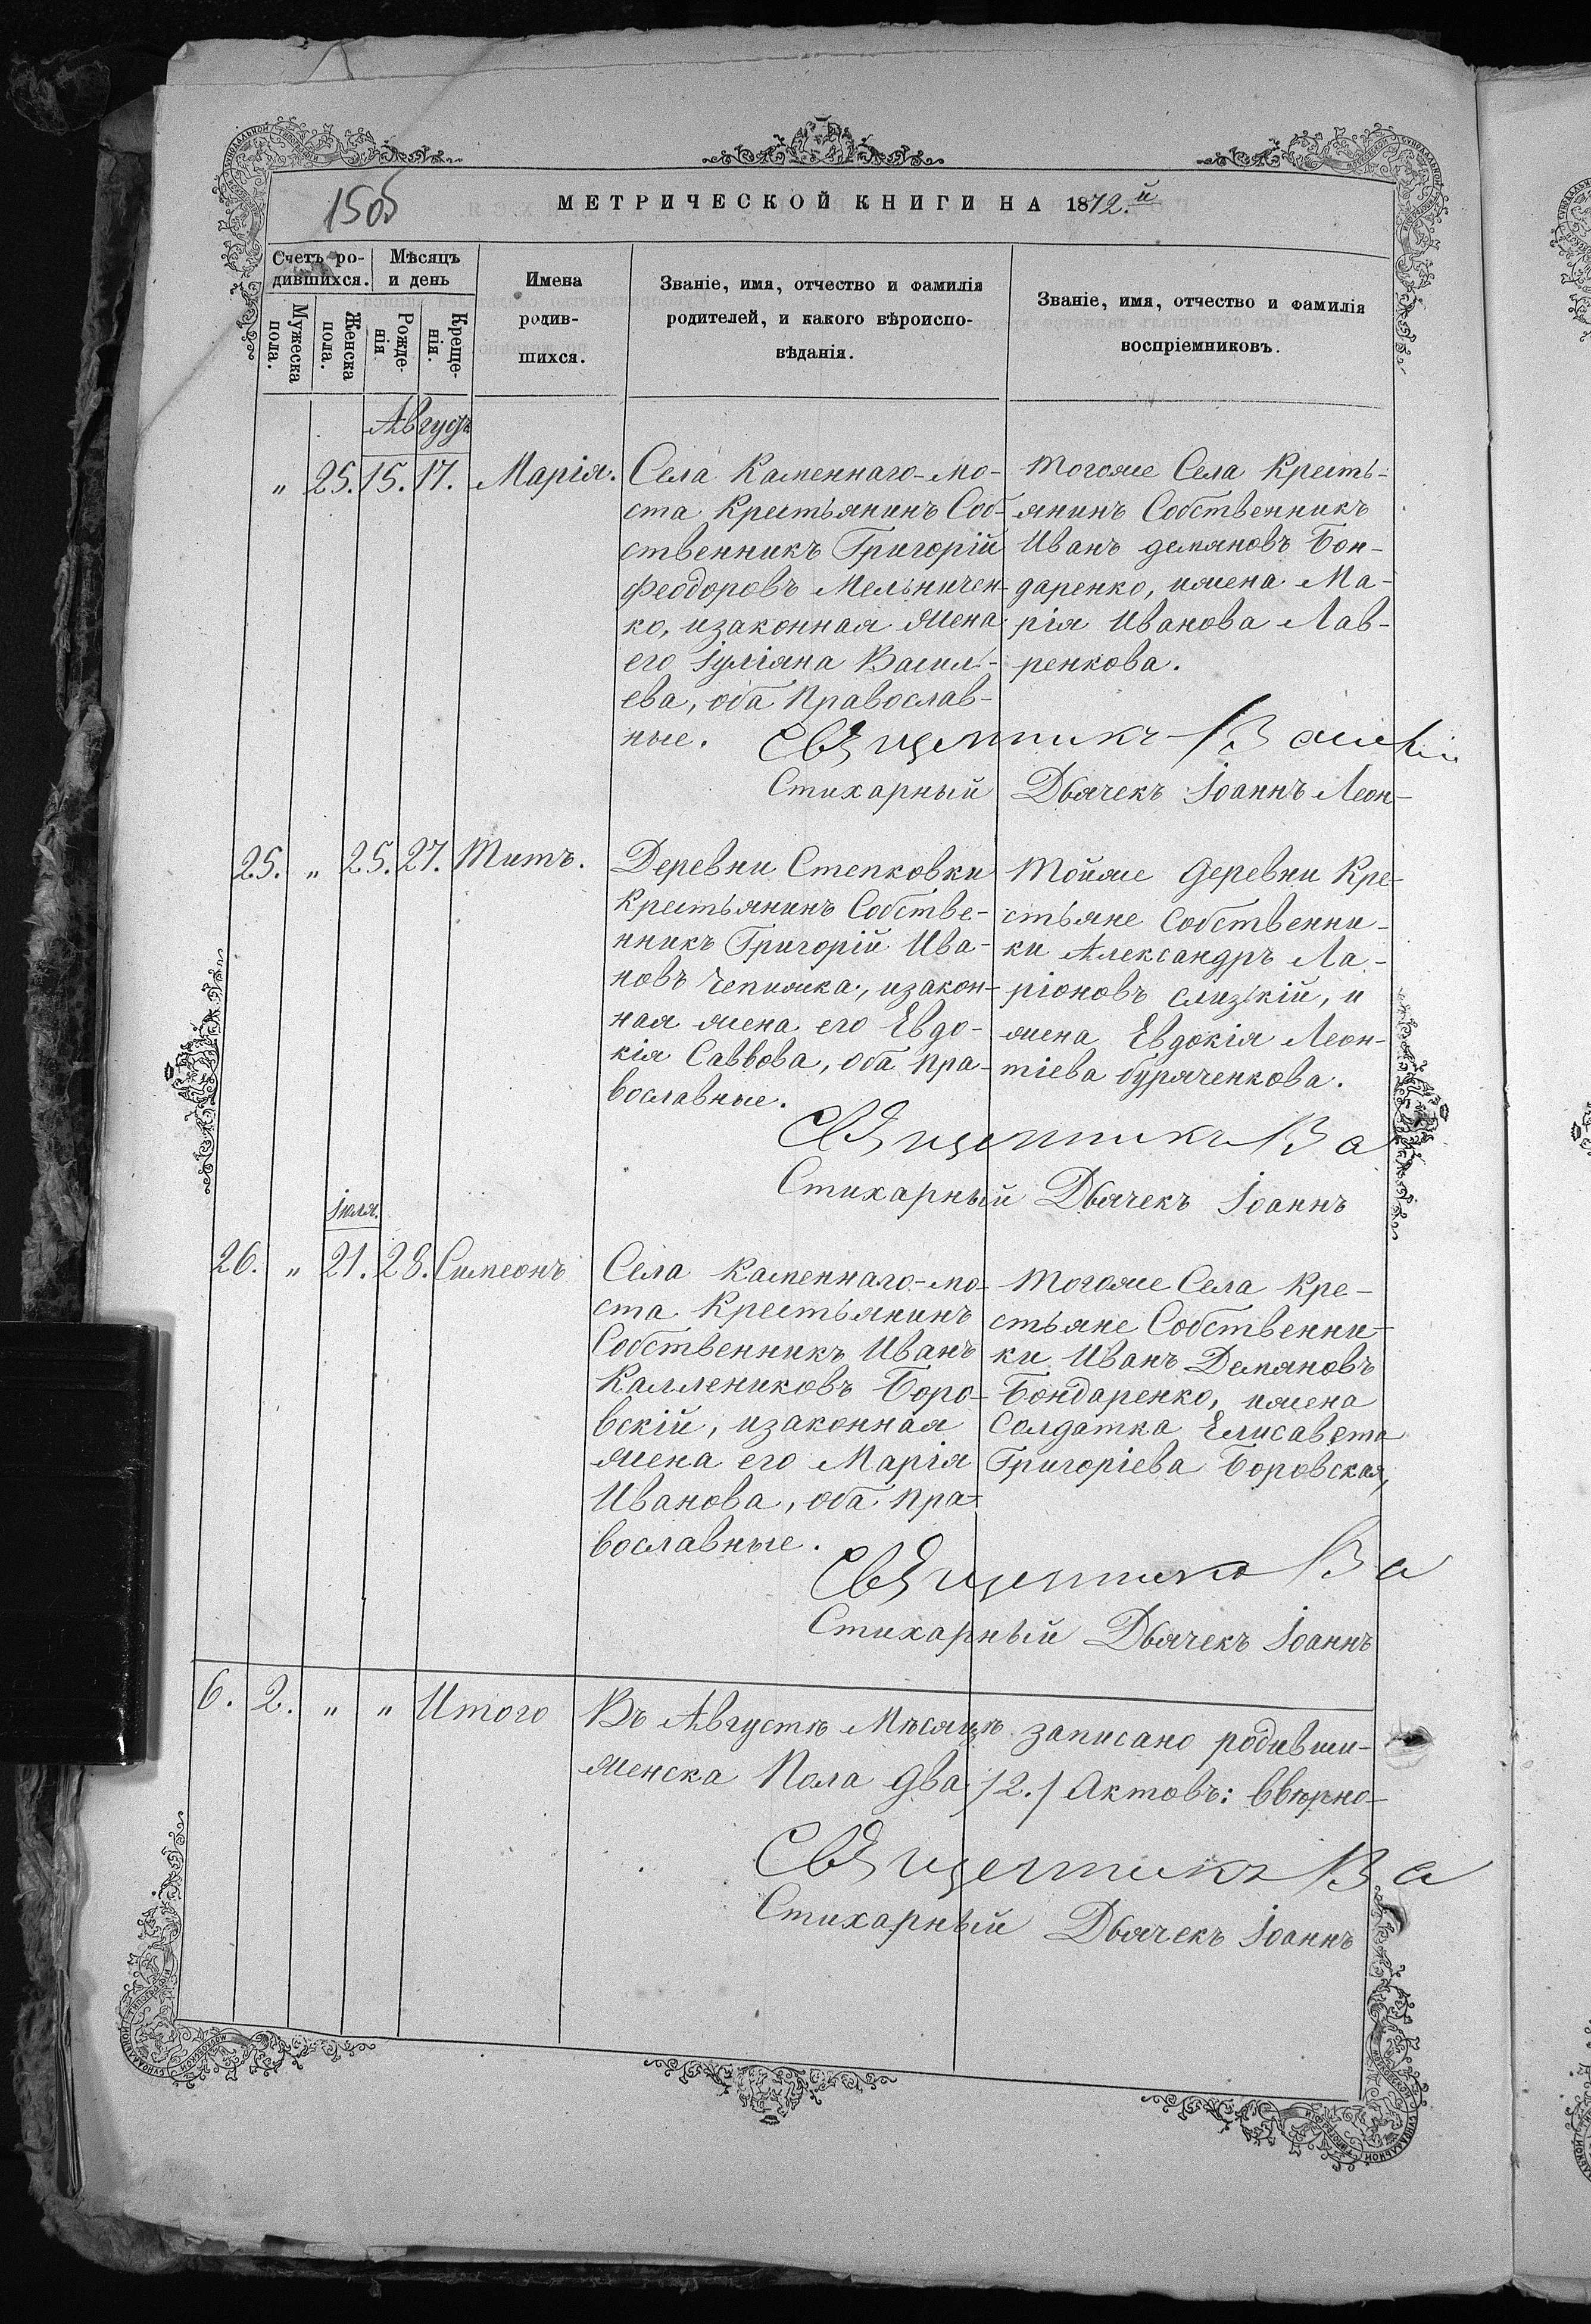 150б
МЕТРИЧЕСКОЙ КНИГИ НА 1872.й
Счетъ ро-
дившихся.
Мѣсяцъ
и день
Мужеска
пола.
Женска
пола.
Рожде-
нія
Креще-
нія.
Имена
родив-
шихся.
Званіе, имя, отчество и фамилія
родителей, и какого вѣроиспо-
вѣданія.
Званіе, имя, отчество и фамилія
воспріемниковъ.
Августъ
„ 25. 15. 17. Марія.
Села Каменнаго-мо-
ста Крестьянинъ Соб-
ственникъ Григорій
Феодоровъ Мельничен-
ко, изаконная жена
его Іуліяна Василь-
ева, оба Православ-
ные.
Тогоже Села Кресть-
янинъ Собственникъ
Иванъ демяновъ Бон-
даренко, ижена Ма-
рія Иванова Лав-
ренкова.
Священникъ
Стихарный Дьячекъ Іоаннъ Леон-
25. „ 25. 27. Титъ.
Деревни Степковки
Крестьянинъ Собстве-
нникъ Григорій Ива-
новъ Чепижка, изакон-
ная жена его Евдо-
кія Саввова, оба Пра-
вославные.
Тойже деревни Кре-
стьяне Собственни-
ки Александръ Ла-
ріоновъ слизькій, и
жена Евдокія Леон-
тіева буряченкова.
Священникъ Ва
Стихарный Дьячекъ Іоаннъ
Іюля.
26. „ 21. 28. Симеонъ
Села Каменнаго-мо-
ста Крестьянинъ
Собственникъ Иванъ
Каллениковъ Боро-
вскій, изаконная
жена его Марія
Иванова, оба Пра-
вославные.
Тогоже Села Кре-
стьяне Собственни-
ки Иванъ Демяновъ
Бондаренко, ижена
Солдатка Елисавета
Григоріева Боровская,
Священникъ Ва
Стихарный Дьячекъ Іоаннъ
6. 2. „ „ Итого
Въ Августѣ Мѣсяцѣ записано родивши-
женска Пола два /2./ Актовъ: ввѣрно-
Священникъ Ва
Стихарный Дьячекъ Іоаннъ